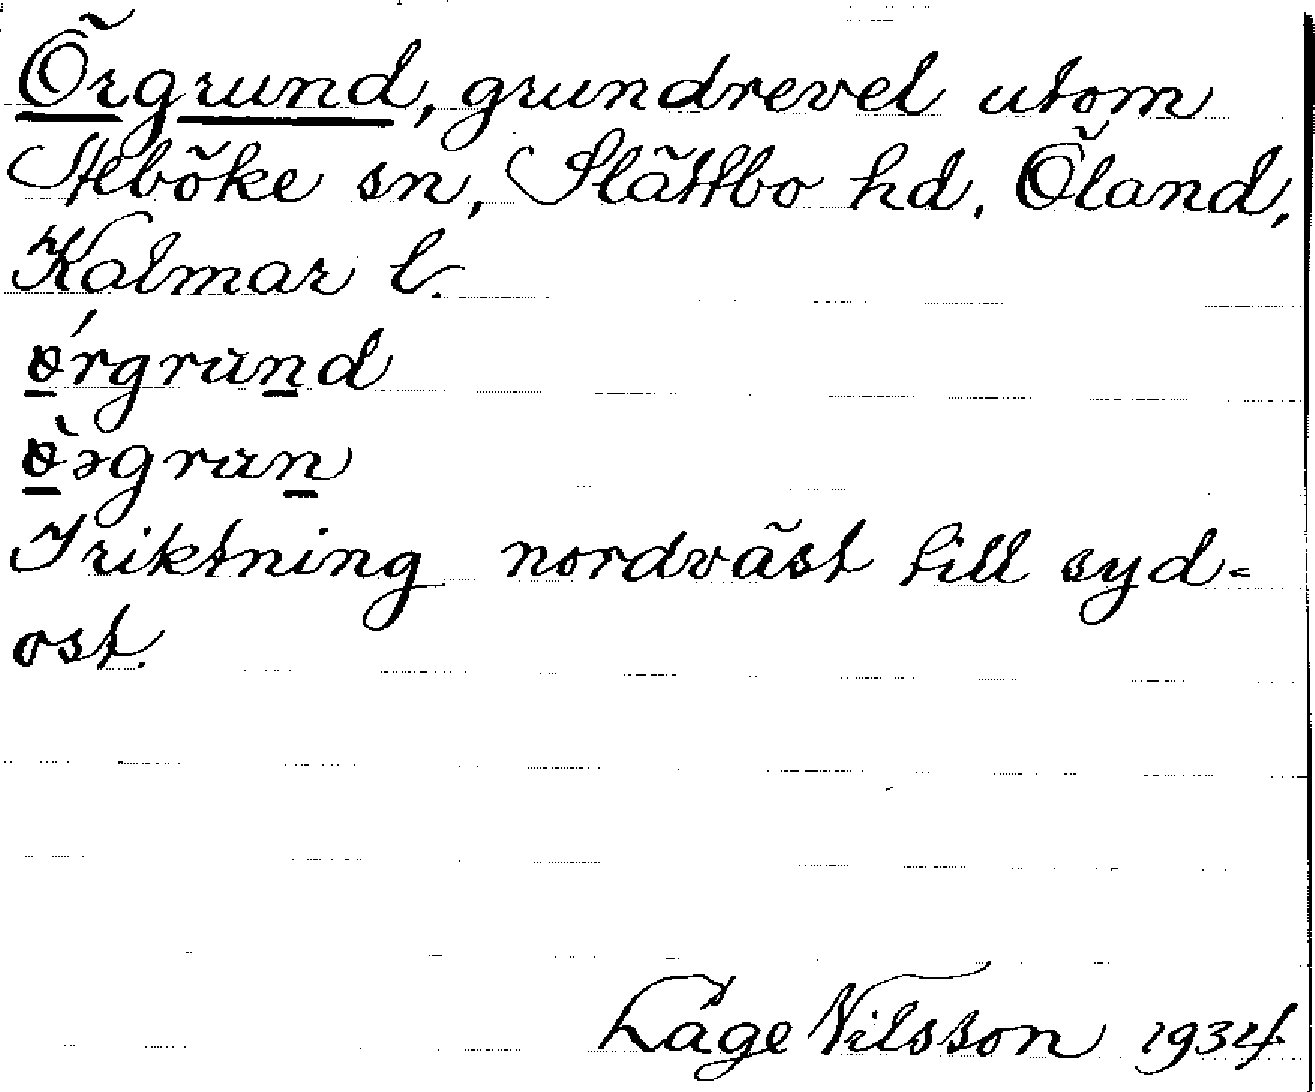 Örgrund, grundrevel utom
Högby sn, Slättbo hd, Öland,
Kalmar l.
ørgrund
øəgrun
I riktning nordväst till syd-
ost.
Låge Nilsson 1934